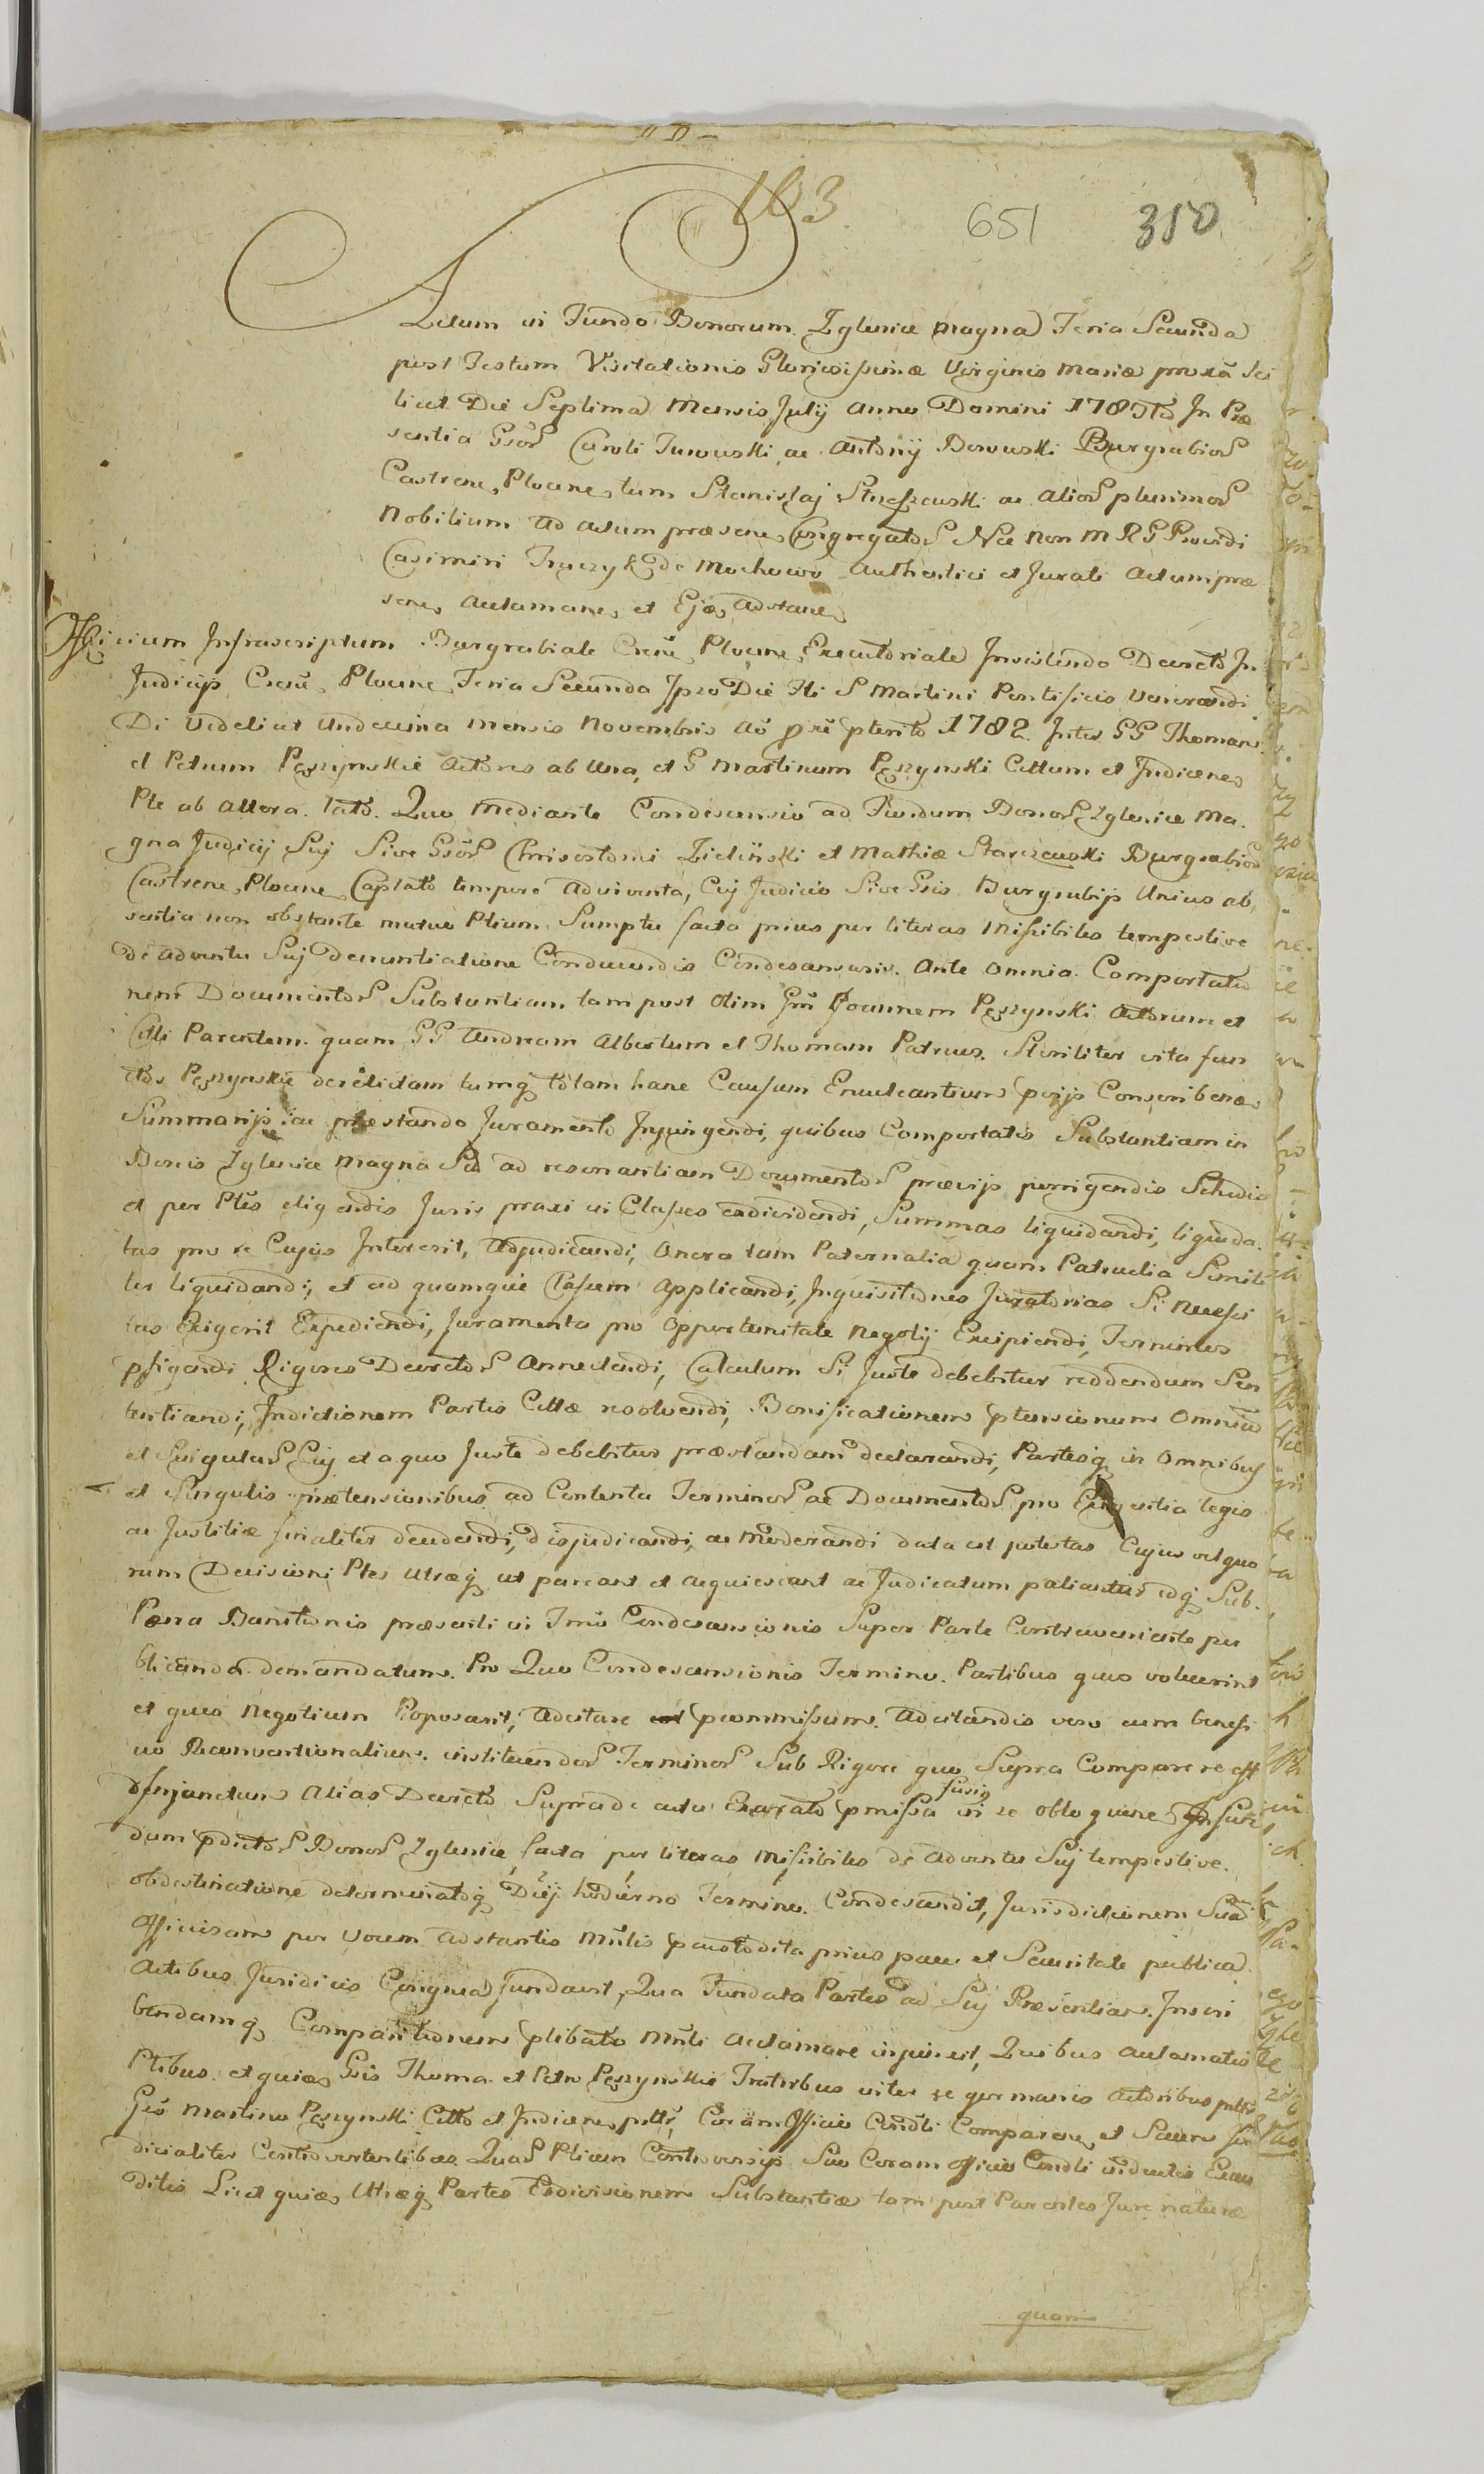 103
651 350
Actum in Fundo Bonorum Zglenice Magna Feria Secunda
post Festum Visitationis Gloriosissimæ Virginis Mariæ proxã sci
licet Die Septima Mensis Julij Anno Domini In Præ
sentia Caroli ac Antonij Borowski Burgrabior
Castrens Plocens tum Stanislaj ac Alior plurimor
Nobilium ad actum præsens Congregator Nec non M R G Providi
Casimiri de Mochowo Authentici et Jurati Actum præ
sens Acclamans et Adstans
Officium Infrascriptum Burgrabiale Plocens Executoriale Insistendo Decreto In
Judicijs Plocens Feria Secunda Ipso Die S Martini Pontificis Venerandi
Di Videlicet Undecima Mensis Novembris Aõ præ pterito 1782 Inter GG Thomam
et Petrum Pęszynskie Actores ab una, et G Martinum Pęszynski Cittum et Indicens
Pte ab altera lato. Quo Mediante Condescensio ad Fundum Bonor Zglenice Ma.
gna Judicij Suj Sive Chrisostomi Zieliński et Mathiæ Burgrabior
Castrens Plocens Captato tempore adventa, Cuj Judicio Sive Burgrabijs Unius ab
sentia non obstante mutuo Ptium Sumptu facta prius per literas Missibiles tempestive
de adventu Suj Denuntiatione Conducendis Condescensuris. Ante omnia Comportatio
nem Documentor Substantiam tam post Olim Joannem Pęszynski Actorum et
Citti Parentem quam GG Andream Albertum et Thomam Patruos Steriliter vita fun
ctos Pęszynskie derelictam tumq totam hanc Causam Enucleantium Conscribens
Summarijs ac præstando Juramento Injungendi, quibus Comportatis Substantiam in
Bonis Zglenice Magna Sed ad resonantiam Documentor præcijs porrigendis Schedis
et per Ptes eligendis Juris praxi in Classes exdividendi, Summas liquidandi, liquida.
tas pro re Cujus Intererit, Adjudicandi, Onera tam Paternalia quam Patruelia Simili
ter liquidandi, et ad quamque Classem Applicandi, Inquisitiones Juratorias Si Necessi
tas Exigerit Expediendi, Juramenta pro Opportunitate Negotij Excipiendi, Terminos
pfigendi Rigores Decretor Annectendi, Calculum Si Juste debebitur reddendum Sen
tentiandi, Indictionem Partis Cittæ resolvendi, Bonificationem ptensionum Omnium
et Singular Cuj et a quo Juste debebitur præstandam declarandi, Partesq in Omnibus
et Singulis prætensionibus ad Contenta Terminor ac Documentor pro Exigentia legis
ac Justitiæ finaliter decidendi, disjudicandi, ac Moderandi data est potestas Cujus vel quo
rum Decisioni Ptes utræq ut pareant et acquiescant ac Judicatum patiantur idq Sub.
Pæna Bannitionis præsenti in Tmo Condescensionis Super Parte Contraveniente pu
blicanda demandatum. Pro Quo Condescensionis Termino. Partibus quos voluerint
et quos Negotium Poposcerit, Adcitare permissum. Adcitandis vero cum benefi
cio Reconventionalium instituendor Terminor Sub Rigore quo Supra Comparere est
Injunctum Alias Decreto Supra de actu Exarato pmissa fusius in se obloquens In fun
dum pdictor Bonor Zglenice facta per literas Missibiles de adventu Suj tempestive
obdestinatione determinatoq Diej hodierno Termino. Condescendit, Jurisdictionem Suã
Officiosam per Vocem Adstantis Mnlis prius pace et Securitate publica
Actibus Juridicis Congrua fundavit, Qua Fundata Partes ad Suj Præsentiam. Inscri
bendamq Comparitionem plibato Mnli Acclamare injunxit, Quibus Acclamatis
Ptibus et quia Thoma et Petro Pęszynskie Fratribus inter se germanis Actoribus
Martino Pęszynski Citto et Indicens Coram Officio Condli Comparens et Secum Ju
dicialiter Controvertentibus Quar Ptium Controversijs Suo Coram Officio Condli inductis Exau
ditis Licet quia Utræq Partes Exdivisionem Substantiæ tam post Parentes Jure naturæ
quam